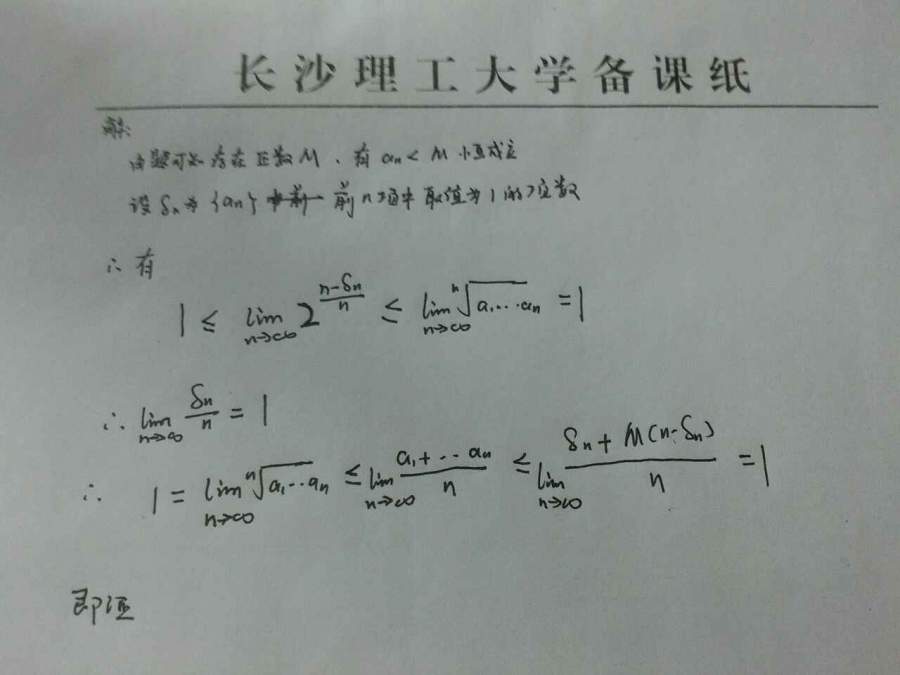 长沙理工大学备课纸
解:
由题可知存在正数M,有 aₙ < M 恒成立
设 δₙ 为 {aₙ} 前n项中取值为1的项数
∴ 有
1 ≤ lim_{n→∞} 2^{(n-δₙ)/n} ≤ lim_{n→∞} ⁿ√(a₁…aₙ) = 1
∴ lim_{n→∞} δₙ/n = 1
∴ 1 = lim_{n→∞} ⁿ√(a₁…aₙ) ≤ lim_{n→∞} (a₁+…aₙ)/n ≤ lim_{n→∞} (δₙ+M(n-δₙ))/n = 1
即证